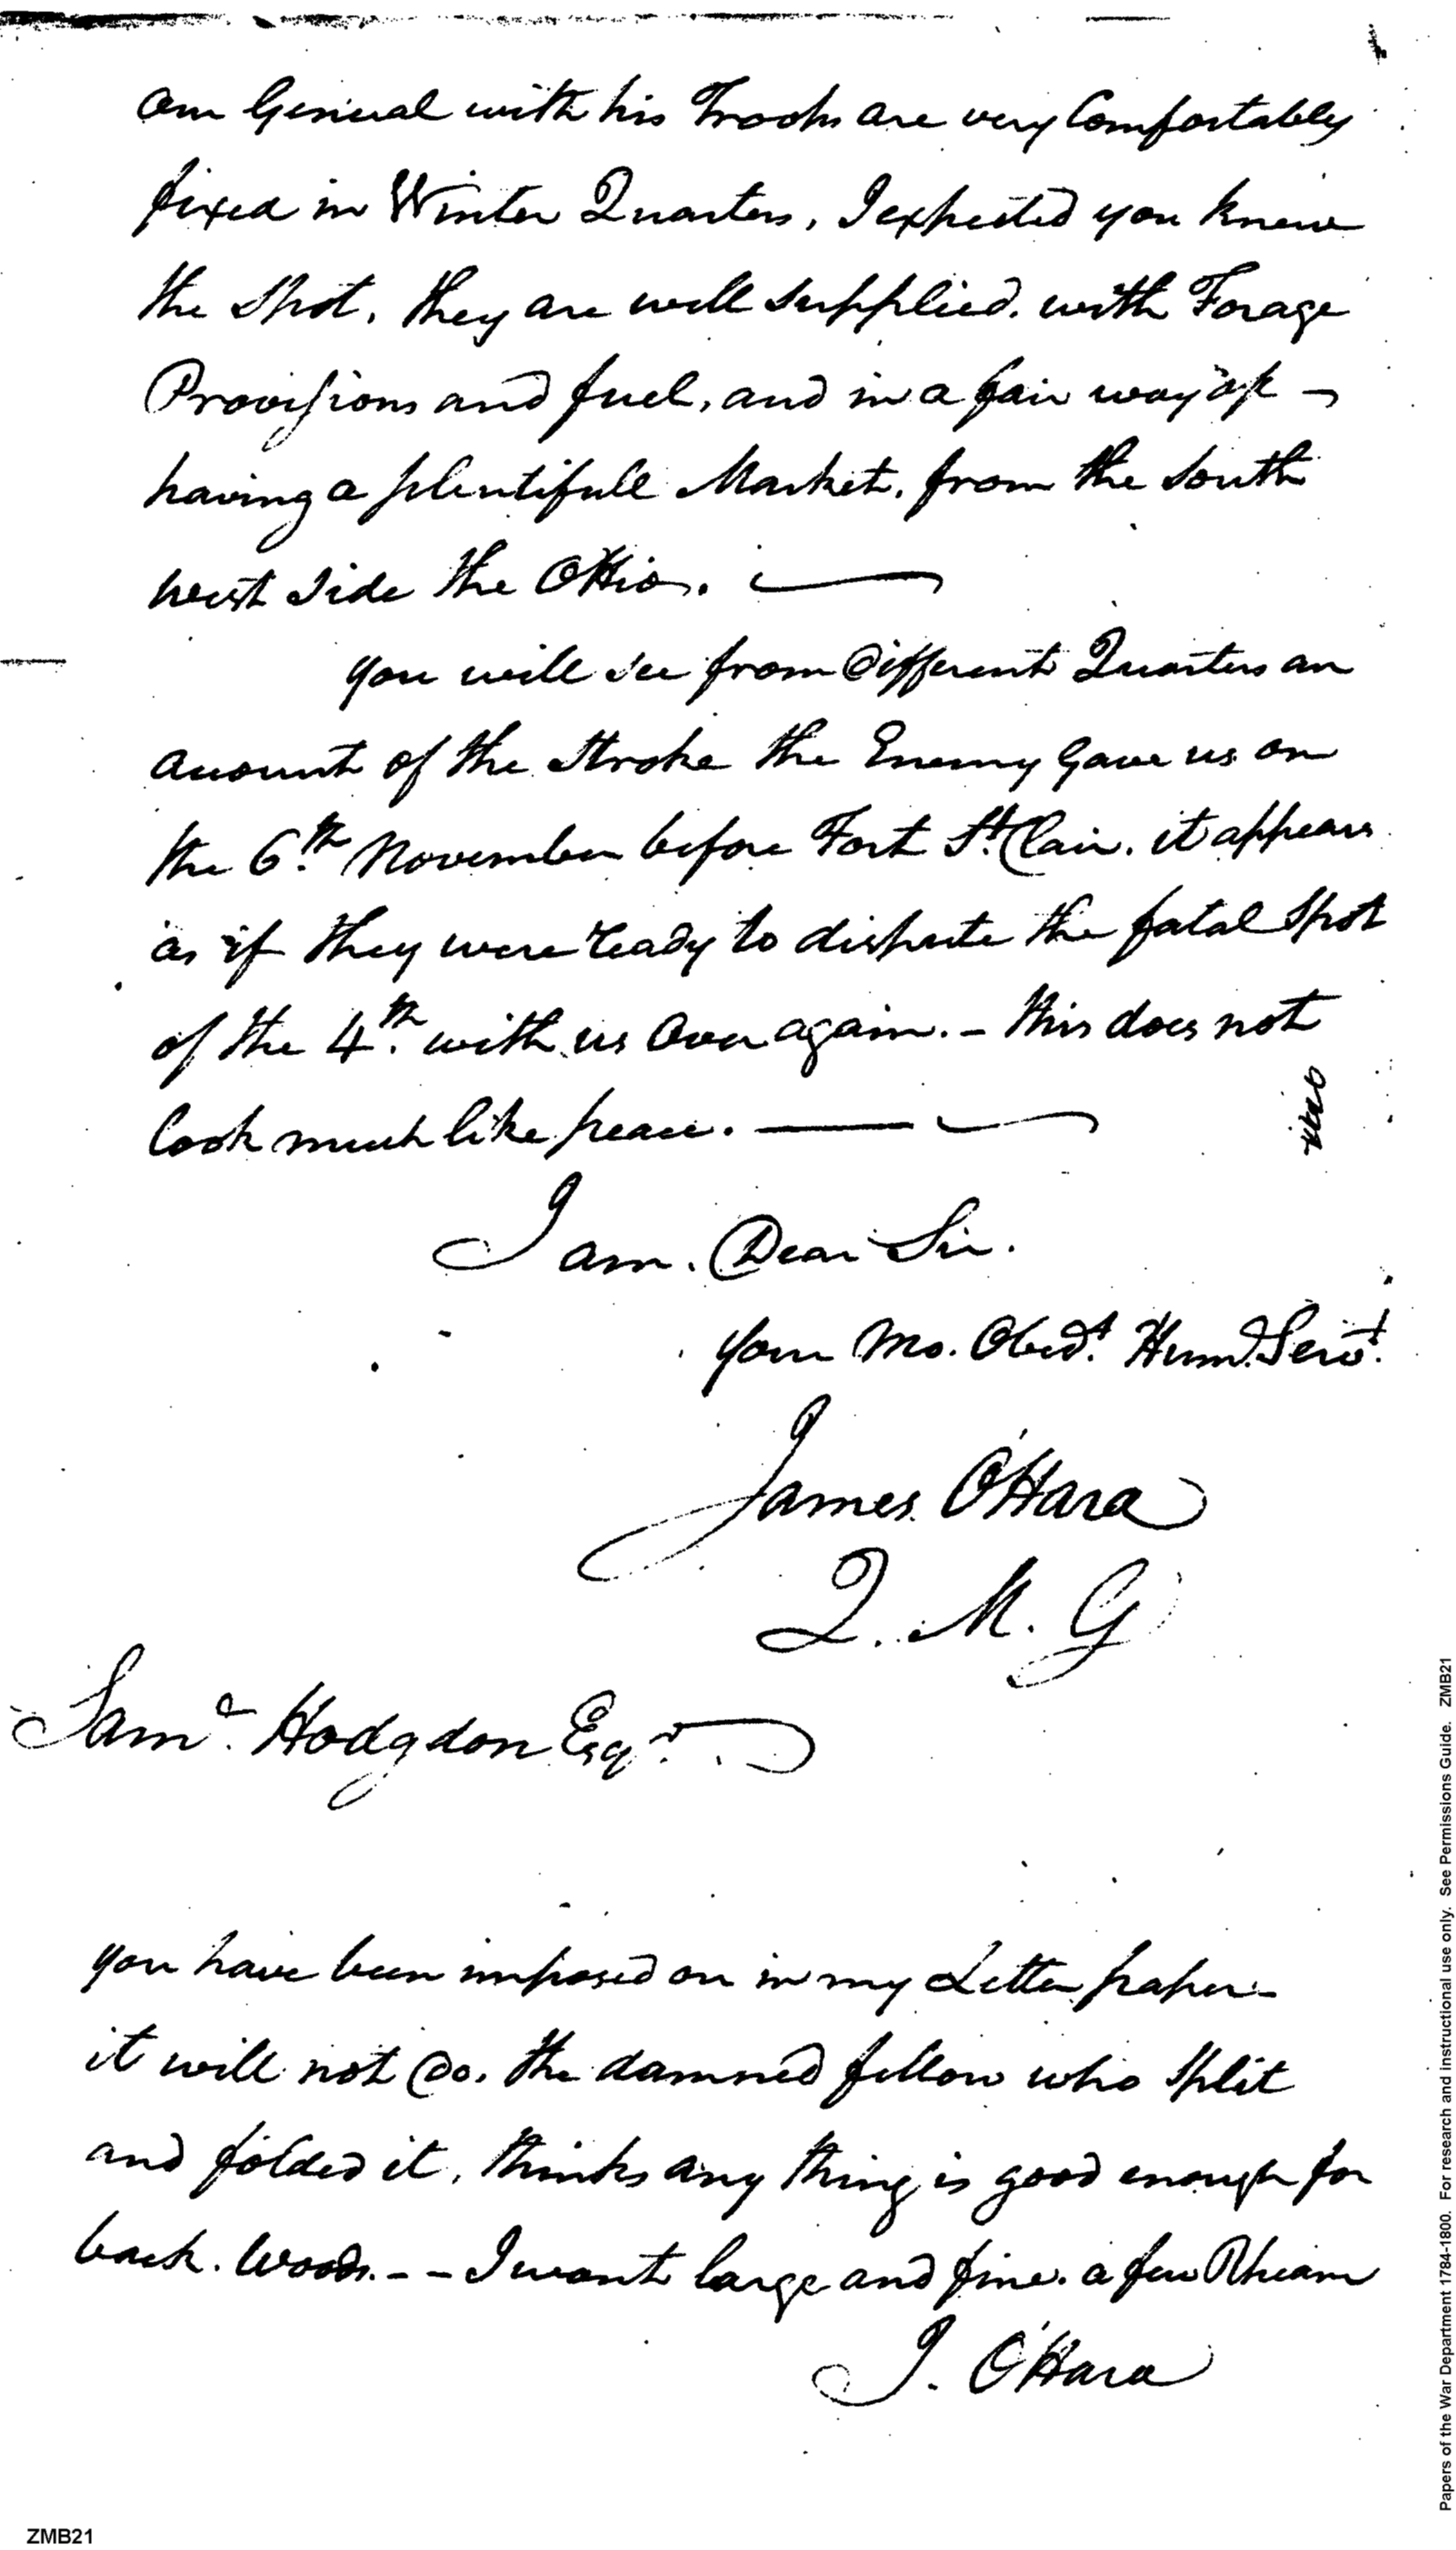 our General with his Troops are very Comfortably
fixed in Winter Quarters, I expected you knew
the Spot, they are well supplied with Forage
Provisions and fuel, and in a fair way of
having a plentifull Market, from the South
west side the Ohio.
you will see from Different Quarters an
account of the Stroke the Enemy gave us on
the 6th. November before Fort St. Clair. it appears
as if they were ready to dispute the fatal Spot
of the 4th. with us over again. - this does not
look much like peace.
I am. Dear Sir.
your Mo. Obedt. Huml. Servt.
James O'Hara
Q. M. G
Saml. Hodgdon Esqr.
you have been imposed on in my Letter paper
it will not Do. the damned fellow who Split
and folded it, thinks any thing is good enough for
back. Woods. - - I want large and fine. a few Rheam
J. O'Hara
Papers of the War Department 1784-1800. For research and instructional use only. See Permissions Guide. ZMB21
ZMB21